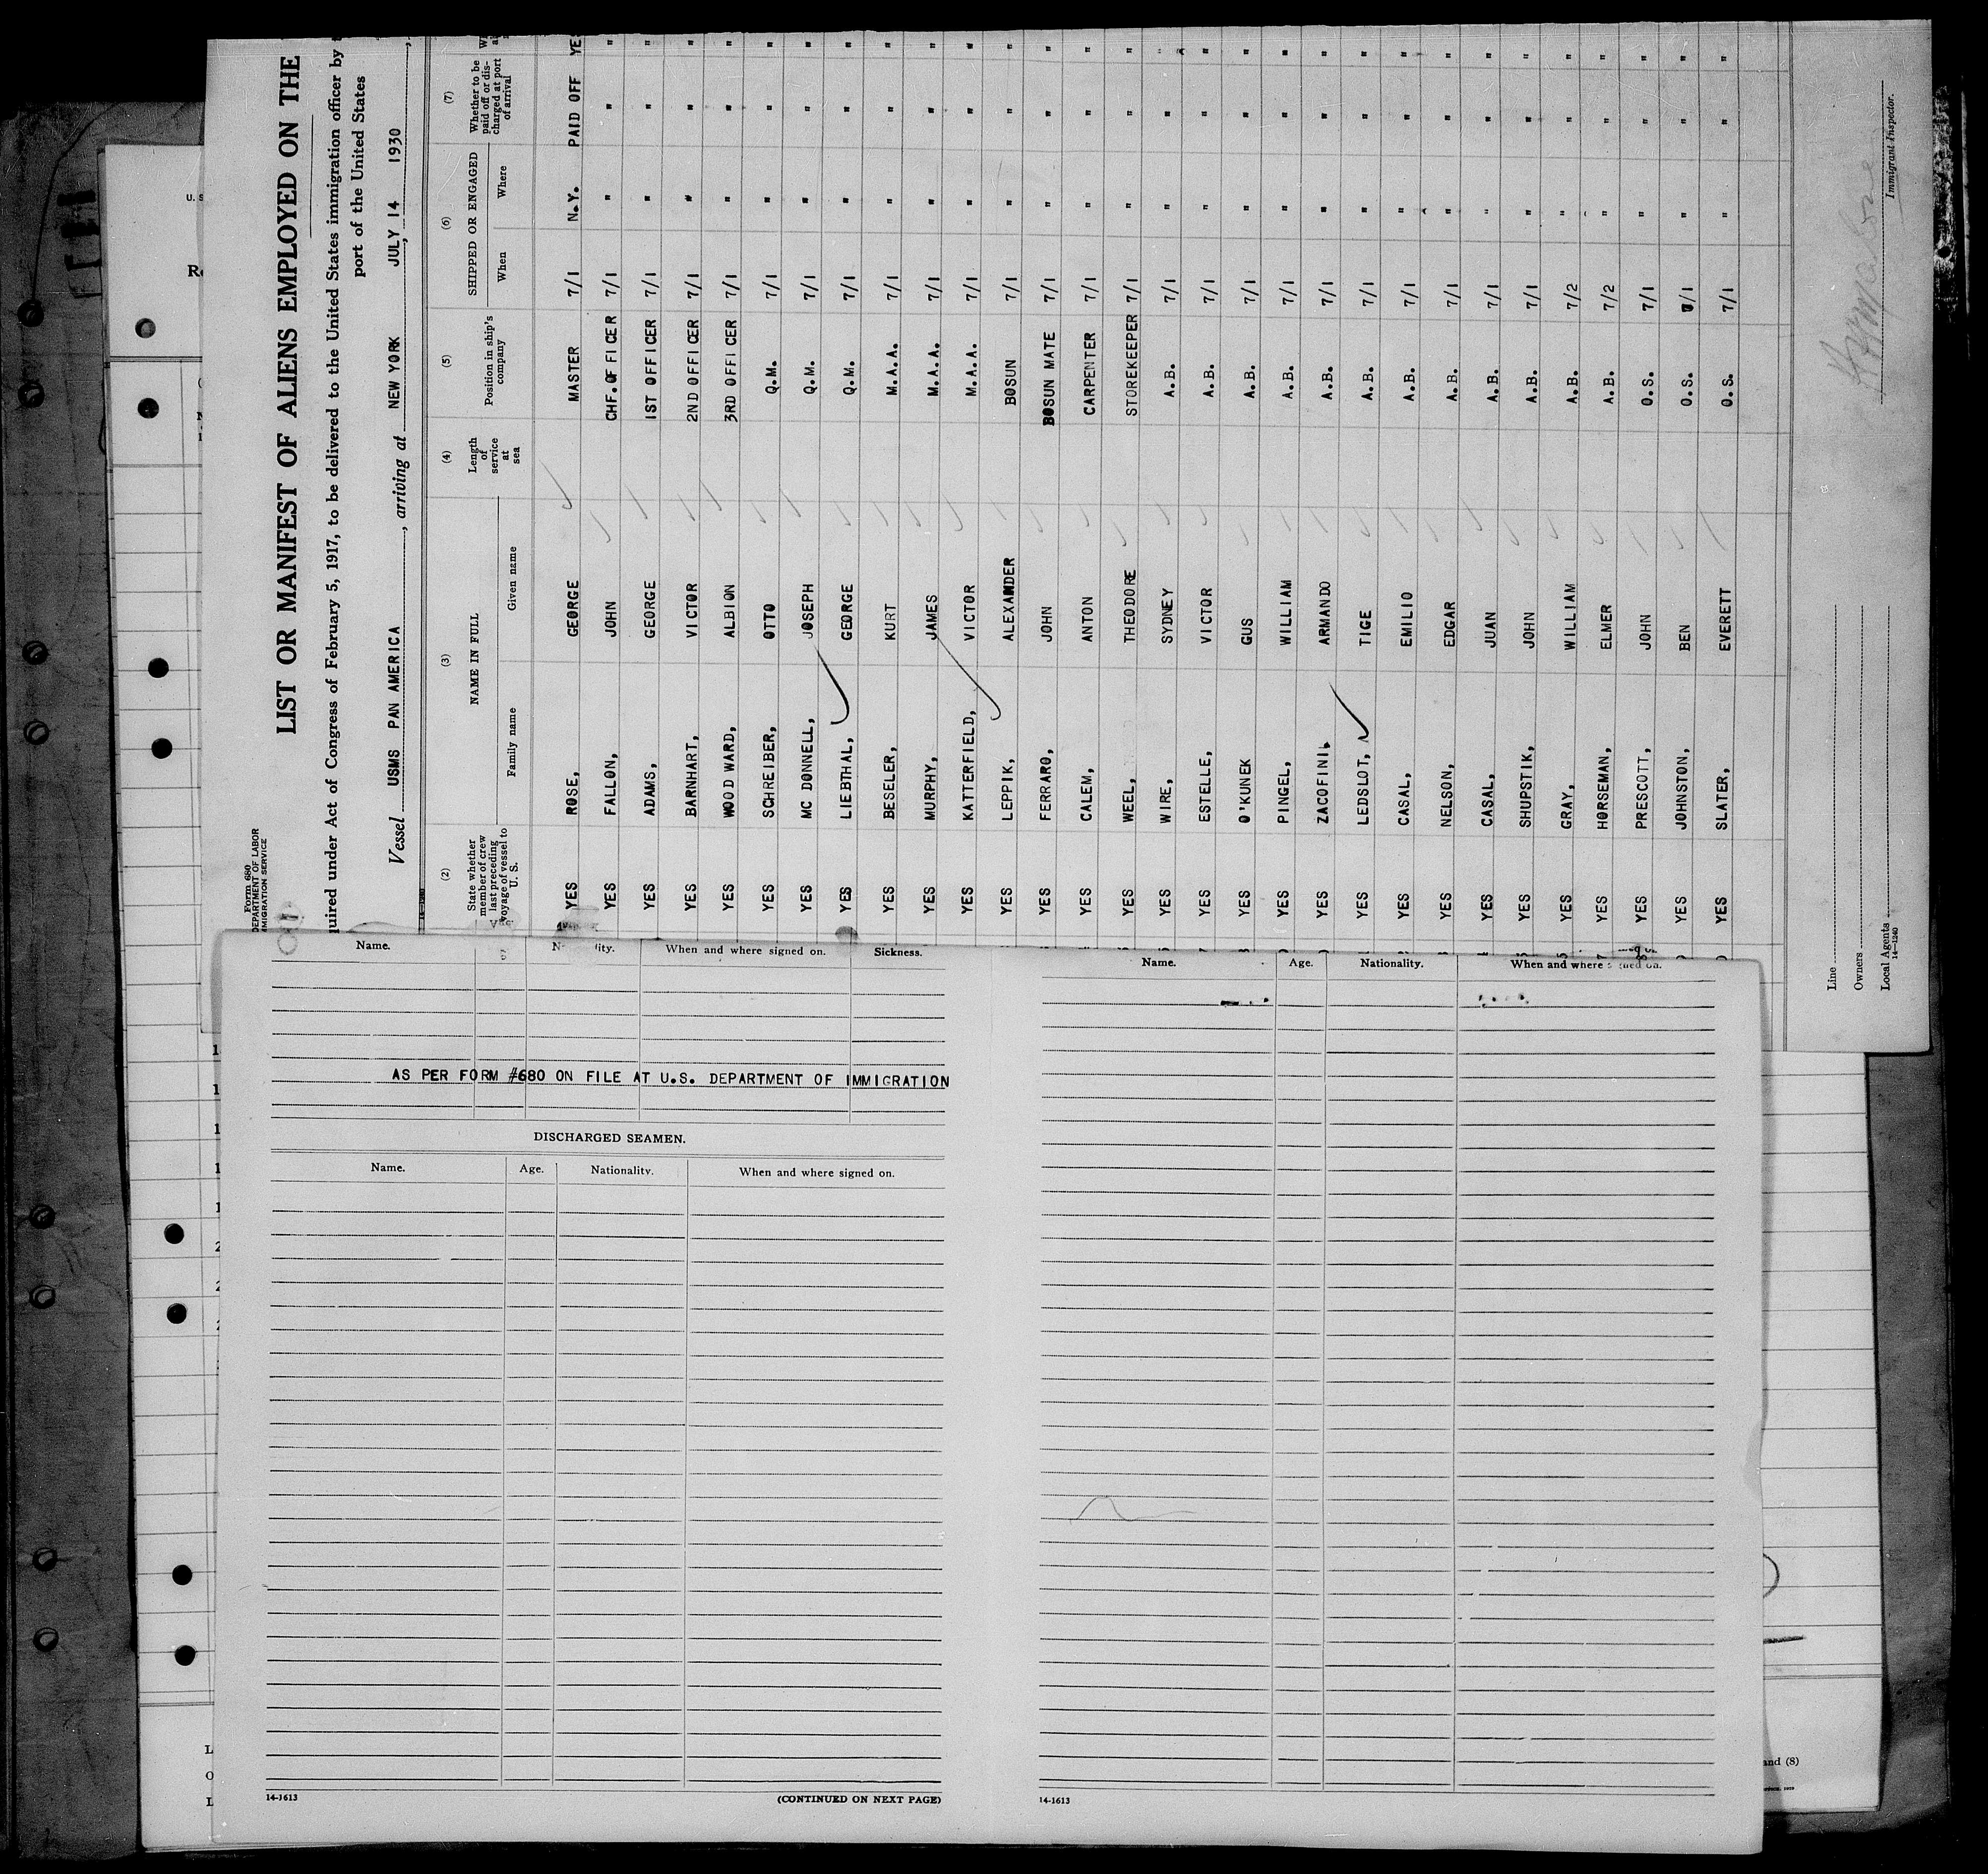 Form 680
DEPARTMENT OF LABOR
IMMIGRATION SERVICE
LIST OR MANIFEST OF ALIENS EMPLOYED ON THE
quired under Act of Congress of February 5, 1917, to be delivered to the United States immigration officer by
port of the United States
Vessel USMS PAN AMERICA, arriving at NEW YORK JULY 14, 1930,
(2) (3) (4) (5) (6) (7)
State whether member of crew last preceding voyage of vessel to U. S. NAME IN FULL Length of service at sea Position in ship's company SHIPPED OR ENGAGED Whether to be paid off or discharged at port of arrival
Family name Given name When Where
YES ROSE, GEORGE MASTER 7/1 N.Y. PAID OFF YES
YES FALLON, JOHN CHF.OFFICER 7/1 " " "
YES ADAMS, GEORGE 1ST OFFICER 7/1 " " "
YES BARNHART, VICTOR 2ND OFFICER 7/1 " " "
YES WOODWARD, ALBION 3RD OFFICER 7/1 " " "
YES SCHREIBER, OTTO Q.M. 7/1 " " "
YES MC DONNELL, JOSEPH Q.M. 7/1 " " "
YES LIEBTHAL, GEORGE Q.M. 7/1 " " "
YES BESELER, KURT M.A.A. 7/1 " " "
YES MURPHY, JAMES M.A.A. 7/1 " " "
YES KATTERFIELD, VICTOR M.A.A. 7/1 " " "
YES LEPPIK, ALEXANDER BOSUN 7/1 " " "
YES FERRARO, JOHN BOSUN MATE 7/1 " " "
YES CALEM, ANTON CARPENTER 7/1 " " "
YES WEEL, THEODORE STOREKEEPER 7/1 " " "
YES WIRE, SYDNEY A.B. 7/1 " " "
YES ESTELLE, VICTOR A.B. 7/1 " " "
YES O'KUNEK GUS A.B. 7/1 " " "
YES PINGEL, WILLIAM A.B. 7/1 " " "
YES ZACOFINI, ARMANDO A.B. 7/1 " " "
YES LEDSLOT, TIGE A.B. 7/1 " " "
YES CASAL, EMILIO A.B. 7/1 " " "
YES NELSON, EDGAR A.B. 7/1 " " "
YES CASAL, JUAN A.B. 7/1 " " "
YES SHUPSTIK, JOHN A.B. 7/1 " " "
YES GRAY, WILLIAM A.B. 7/2 " " "
YES HORSEMAN, ELMER A.B. 7/2 " " "
YES PRESCOTT, JOHN O.S. 7/1 " " "
YES JOHNSTON, BEN O.S. 7/1 " " "
YES SLATER, EVERETT O.S. 7/1 " " "
Line
Owners
Local Agents
14—1240
Immigrant Inspector.
Name. When and where signed on. Sickness.
AS PER FORM #680 ON FILE AT U.S. DEPARTMENT OF IMMIGRATION
DISCHARGED SEAMEN.
Name. Age. Nationality. When and where signed on.
14-1613
(CONTINUED ON NEXT PAGE)
Name. Age. Nationality. When and where signed on.
14-1613
and (8)